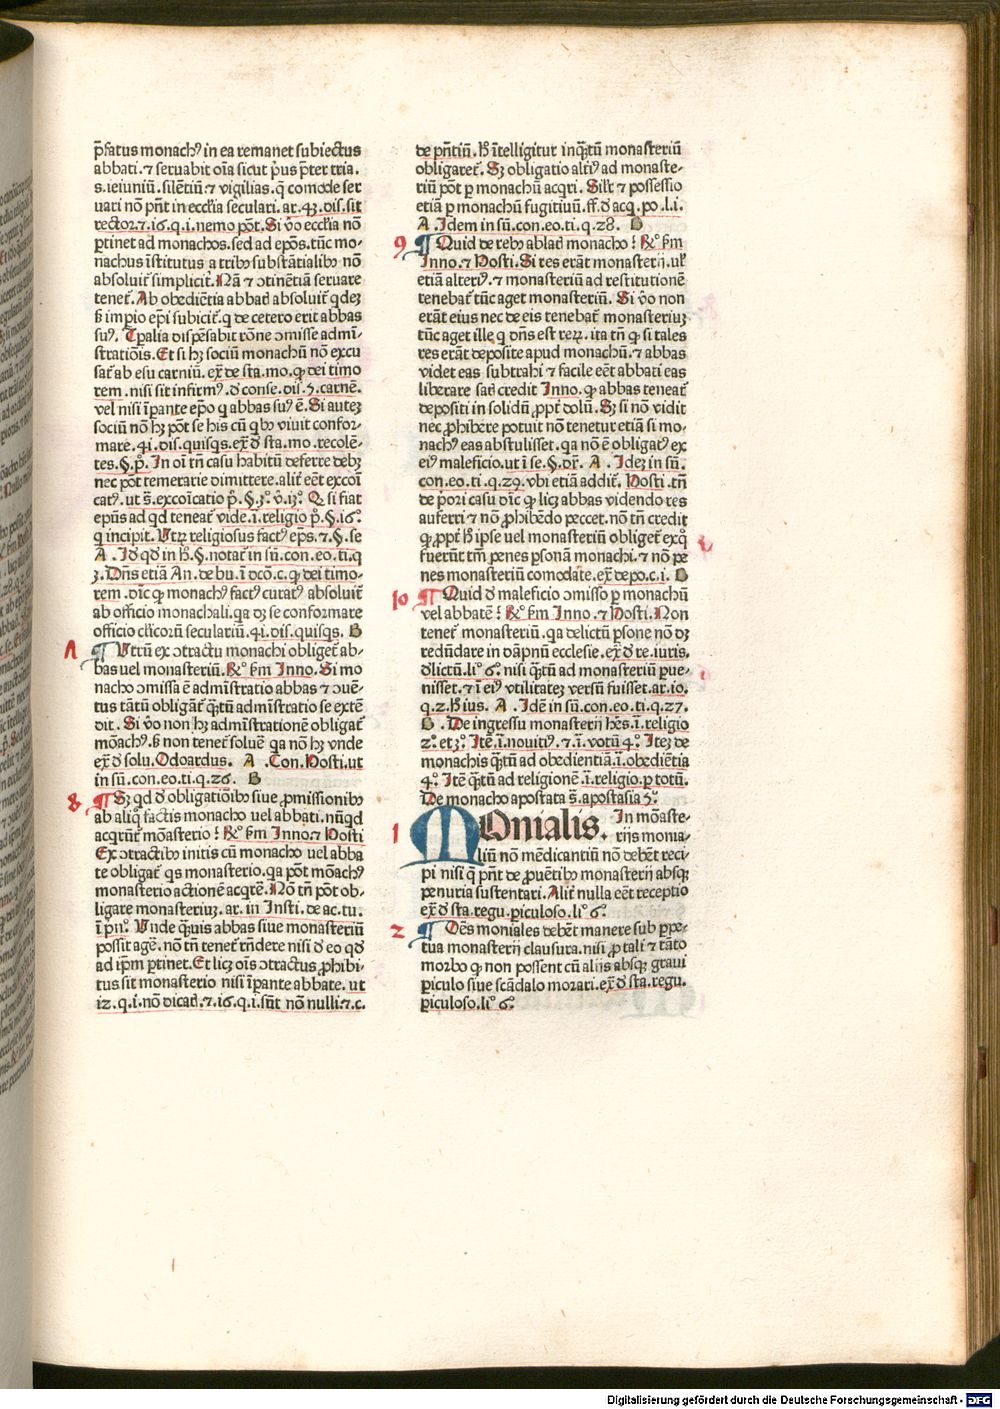 p̄fatus monachꝰ in ea remanet subiectus
abbati.⁊ seruabit oīa sicut pͥus p̄ter tria.
s.ieiuniū.silētiū ⁊ vigilias.q̄ comode ser
uari nō pn̄t in eccl̄ia seculari.ar.43.dis.sit
rector.⁊.16.q.i.nemo pōt.Si v̊o eccl̄ia nō
ptinet ad monachos.sed ad ep̄os.tūc mo-
nachus īstitutus a tribꝰ substātialibꝰ nō
absoluit᷑ simplicit᷑.Nā ⁊ ↄtinētiā seruare
tenet᷑.Ab obediētia abbatꝭ absoluit᷑ qdeꝫ
ſꝫ impio epī subicit᷑.q de cetero erit abbas
suꝰ. Tp̄alia dispēsabit rōne ↄmisse admī-
stratiōis.Et si hꝫ sociū monachū nō excu
sat᷑ ab esu carniū.ex̄ de sta.mo.qꝙ dei timo
rem.nisi sit infirmꝰ.d̄ conse.dis.5.carnē.
vel nisi īpante ep̄o q abbas suꝰ ē.Si auteꝫ
sociū nō hꝫ pōt se his cū qbꝰ viuit confor-
mare.41.dis.quisqs.ex̄ d̄ sta.mo.recolē-
tes.§.pͦ.In oī tn̄ casu habitū deferre debꝫ
nec pōt temerarie dimittere.alit᷑ eēt excoī
catꝰ.ut s̄.excoīcatio pͦ.§.3ͦ.v̊.1ꝫͦ. Q si fiat
ep̄us ad qd teneat᷑ vide.ī.religio pͦ.§.16ͦ.
q incipit.Utꝝ religiosus factꝰ ep̄s.⁊.§.se
A .Id̄ qd̄ in h̊.§.notat᷑ in sū.con.eo.ti.q
3.Dn̄s etiā An.de bu.ī dcō.c.qꝙ dei timo-
rem.dic̄ qꝙ monachꝰ factꝰ curatꝰ absoluit᷑
ab officio monachali.qa dꝫ se conformare
officio cl̄icorū seculariū.41.dis.quisqs. B
7 ¶ Utrū ex ↄtractu monachi obliget᷑ ab-
bas uel monasteriū.Rͦ.ſm Inno.Si mo
nacho ↄmissa ē admīstratio abbas ⁊ ↄuē-
tus tātū obligāt᷑ qꝫtū admīstratio se extē
dit.Si v̊o non hꝫ admīstrationē obligat᷑
mōachꝰ.ſꝫ non tenet᷑ soluē qa nō hꝫ vnde
ex̄ d̄ solu.Odoardus. A .Con.Hosti.ut
in sū.con.eo.ti.q.26. B
8 ¶ Sꝫ qd d̄ obligatiōibꝰ siue ꝓmissionibꝰ
ab aliqͦ factis monacho uel abbati.nūqd
acqrūt᷑ mōasterio? Rͦ.ſm Inno.⁊ Hosti
Ex ↄtractibꝰ initis cū monacho uel abba
te obligat᷑ qs monasterio.qa pōt mōachꝰ
monasterio actionē acqrē.Nō tn̄ pōt ob-
ligare monasteriuꝫ.ar.in Insti.de ac.tu.
ī pn̊.Unde qꝫuis abbas siue monasteriū
possit agē.nō tn̄ tenet᷑ rn̄dere nisi d̄ eo qd̄
ad ip̄m ptinet.Et licꝫ oīs ↄtractus ꝓhibi-
tus sit monasterio nisi īpante abbate.ut
12.q.i.nō dicatꝭ.⁊.16.q.i.sūt nō nulli.⁊.c.
de pn̄tiū.h̊ ītelligitur inqꝫtū monasteriū
obligaret᷑.Sꝫ obligatio alteriꝰ ad monaste-
riū pōt p monachū acqri.Silr̄ ⁊ possessio
etiā p monachū fugitiuū.ff.d̄ acq.po.l.i.
A .Idem in sū.con.eo.ti.q.28. B
9 ¶ Quid de rebꝰ ablatꝭ monacho? Rͦ.ſm
Inno.⁊ Hosti.Si res erāt monasterij.ul̕
etiā alteriꝰ.⁊ monasteriū ad restitutionē
tenebat᷑ tūc aget monasteriū. Si v̊o non
erāt eius nec de eis tenebat᷑ monasteriuꝫ
tūc aget ille q dn̄s est reꝝ.ita tn̄ qꝙ si tales
res erāt deposite apud monachū.⁊ abbas
videt eas subtrahi ⁊ facile eēt abbati eas
liberare satꝭ credit Inno.qꝙ abbas teneat᷑
depositi in solidū ꝓpt᷑ dolū.Sꝫ si nō vidit
nec ꝓhibere potuit nō tenetur etiā si mo-
nachꝰ eas abstulisset.qa nō ē obligatꝰ ex
eiꝰ maleficio.ut ī se.§.dr̄. A .Ideꝫ in sū.
con.eo.ti.q.29.vbi etiā addit᷑. Hosti.tn̄
de pͥori casu dic̄ qꝙ licꝫ abbas videndo res
auferri ⁊ nō ꝓhibēdo peccet.nō tn̄ credit
qꝙ ꝓpt᷑ h̊ ipse uel monasteriū obliget᷑ exqͦ
fuerūt tm̄ penes psonā monachi.⁊ nō pe
nes monasteriū comodate.ex̄ depo.c.i. B
10 ¶ Quid d̄ maleficio ↄmisso p monachū
vel abbatē? Rͦ.ſm Inno.⁊ Hosti.Non
tenet᷑ monasteriū.qa delictū psone nō dꝫ
redūdare in dāpnū ecclesie.ex̄ d̄ re.iuris.
dlictū.liͦ 6ͦ.nisi qꝫtū ad monasteriū pue-
nisset.⁊ ī eiꝰ vtilitateꝫ versū fuisset.ar.io.
q.2.h̊ ius. A .Idē in sū.con.eo.ti.q.27.
B .De ingressu monasterij hēs.ī.religio
2ͦ.et 3ͦ. Itē.ī.nouitiꝰ.⁊.ī.votū 4ͦ.Iteꝫ de
monachis qꝫtū ad obedientiā.ī.obedientia
4ͦ.Itē qꝫtū ad religionē.ī.religio.p totū.
De monacho apostata s̄.apostasia 5ͦ.
1 MOnialis. In mōaste-
riis monia-
liū nō mēdicantiū nō debēt reci-
pi nisi qꝫ pn̄t de ꝓuētibꝰ monasterij absqꝫ
penuria sustentari.Alit᷑ nulla eēt receptio
ex̄ d̄ sta.regu.piculoso.liͦ 6ͦ.
2 ¶ Oēs moniales debēt manere sub ppe-
tua monasterij clausura.nisi ꝓ tali ⁊ tāto
morbo qꝙ non possent cū aliis absqꝫ graui
piculo siue scādalo morari.ex̄ d̄ sta.regu.
piculoso.liͦ 6ͦ.
Digitalisierung gefördert durch die Deutsche Forschungsgemeinschaft - DFG